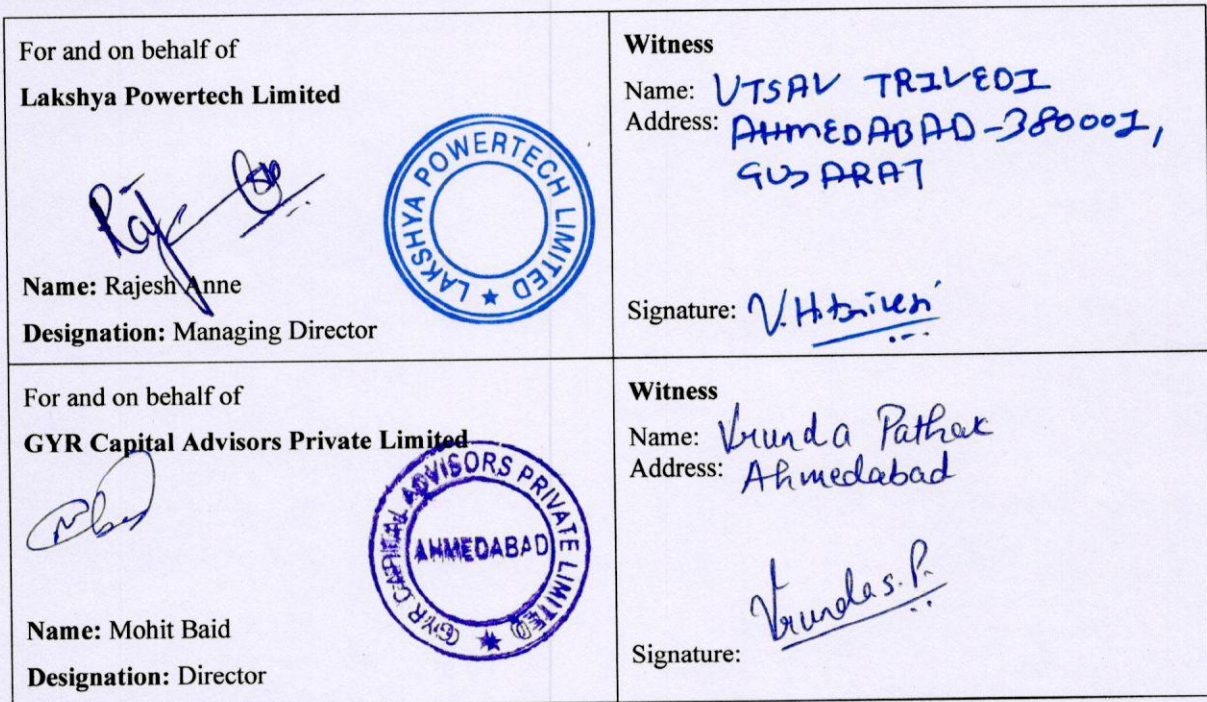 For and on behalf of
Lakshya Powertech Limited
LAKSHYA POWERTECH LIMITED
Name: Rajesh Anne
Designation: Managing Director
Witness
Name: UTSAV TRIVEDI
Address: AHMEDABAD-380001,
GUJARAT
Signature: V.H.trivedi
For and on behalf of
GYR Capital Advisors Private Limited
GYR CAPITAL ADVISORS PRIVATE LIMITED
AHMEDABAD
Name: Mohit Baid
Designation: Director
Witness
Name: Vrunda Pathak
Address: Ahmedabad
Vrunda S. P.
Signature: